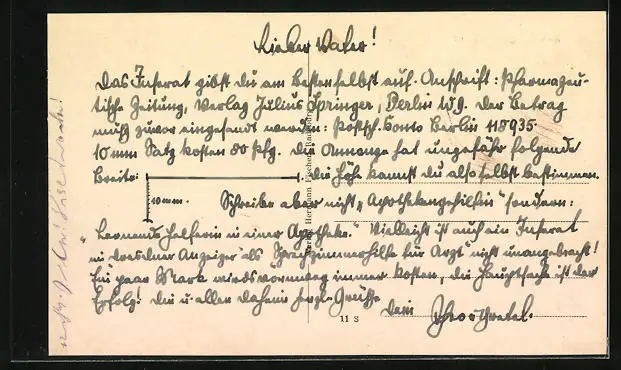 Lieber Vater!
Das Inserat gibst du am besten selbst auf. Anschrift: Pharmazeu-
tische Zeitung, Verlag Julius Springer, Berlin W9. Der Betrag
muß zuvor eingesandt werden: Postsch. Konto Berlin 118935.
10 mm Satz kosten 80 Pfg. Die Annonze hat ungefähr folgende
Breite: die Höhe kannst du also selbst bestimmen.
10 mm. Schreibe aber nicht „Apothekengehilfin" sondern:
„Lernende Helferin in einer Apotheke." Vielleicht ist auch ein Inserat
im Dresdner Anzeiger als „Sprechzimmerhilfe für Arzt" nicht unangebracht!
Ein paar Mark wird's vornweg immer kosten, die Hauptsache ist der
Erfolg! Dir u. allen daheim herzl. Grüße
dein
11 S